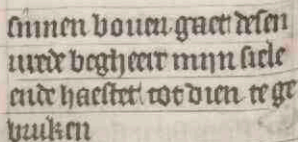 sinnen bouen gaet desen
urede begheert mijn siele
ende haestet tot dien te ge
bruken